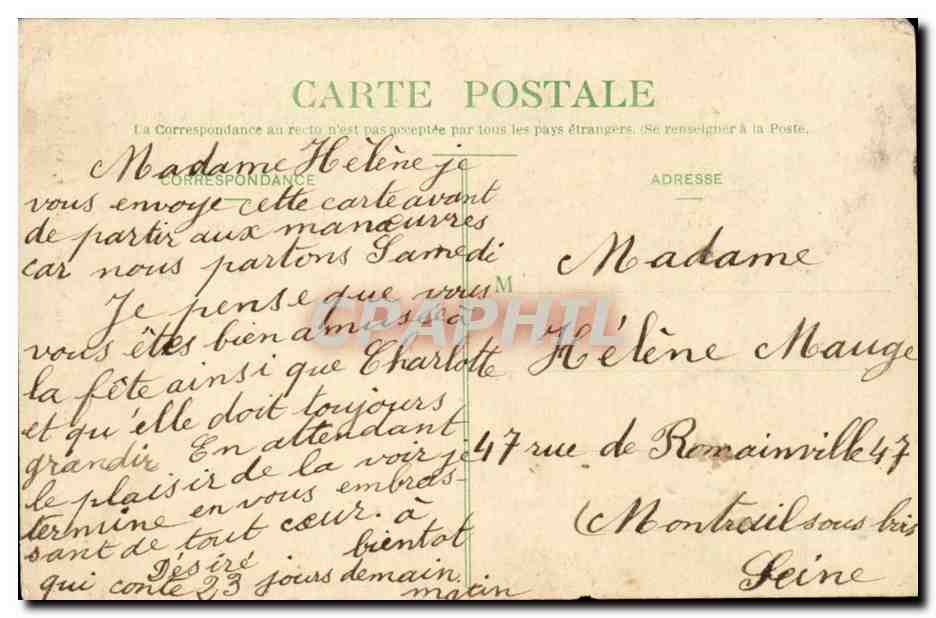 CARTE POSTALE
La Correspondance au recto n'est pas acceptée par tous les pays étrangers. (Se renseigner à la Poste.
CORRESPONDANCE
Madame Hélène je
vous envoye cette carte avant
de partir aux manœuvres
car nous partons Samedi
Je pense que vous
vous êtes bien amusée à
la fête ainsi que Charlotte
et qu'elle doit toujours
grandir En attendant
le plaisir de la voir je
termine en vous embras-
sant de tout cœur. à
bientot
Désiré
qui conte 23 jours demain
matin
ADRESSE
M
Madame
Hélène Mauge
47 rue de Romainville 47
Montreuil sous bois
Seine
CPAPHIL